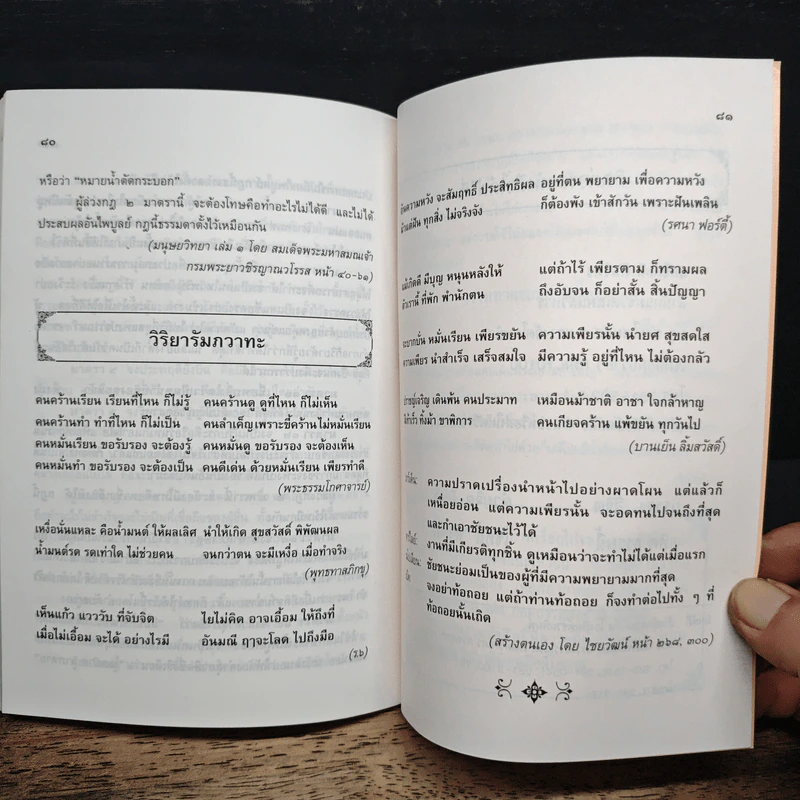 ๘๐
หรือว่า “หมายน้ำตัดกระบอก”
ผู้ล่วงกฎ ๒ มาตรานี้ จะต้องโทษคือทำอะไรไม่ได้ดี และไม่ได้
ประสบผลอันไพบูลย์ กฎนี้ธรรมดาตั้งไว้เหมือนกัน
(มนุษยวิทยา เล่ม ๑ โดย สมเด็จพระมหาสมณเจ้า
กรมพระยาวชิรญาณวโรรส หน้า ๔๐-๖๑)
วิริยารัมภวาทะ
คนคร้านเรียน เรียนที่ไหน ก็ไม่รู้ คนคร้านดู ดูที่ไหน ก็ไม่เห็น
คนคร้านทำ ทำที่ไหน ก็ไม่เป็น คนลำเค็ญ เพราะขี้คร้านไม่หมั่นเรียน
คนหมั่นเรียน ขอรับรอง จะต้องรู้ คนหมั่นดู ขอรับรอง จะต้องเห็น
คนหมั่นทำ ขอรับรอง จะต้องเป็น คนดีเด่น ด้วยหมั่นเรียน เพียรทำดี
(พระธรรมโกศาจารย์)
เหงื่อนั่นแหละ คือน้ำมนต์ ให้ผลเลิศ นำให้เกิด สุขสวัสดิ์ พิพัฒนผล
น้ำมนต์รด รดเท่าใด ไม่ช่วยคน จนกว่าตน จะมีเหงื่อ เมื่อทำจริง
(พุทธทาสภิกขุ)
เห็นแก้ว แวววับ ที่จับจิต ไยไม่คิด อาจเอื้อม ให้ถึงที่
เมื่อไม่เอื้อม จะได้ อย่างไรมี อันมณี ฤๅจะโลด ไปถึงมือ
(ร.๖)
๘๑
ความหวัง จะสัมฤทธิ์ ประสิทธิผล อยู่ที่ตน พยายาม เพื่อความหวัง
ทุกสิ่ง ไม่จริงจัง ก็ต้องพัง เข้าสักวัน เพราะฝันเพลิน
(รศนา ฟอร์ตี้)
มีบุญ หนุนหลังให้ แต่ถ้าไร้ เพียรตาม ก็ทรามผล
ที่พัก พำนักตน ถึงอับจน ก็อย่าสั้น สิ้นปัญญา
หมั่นเรียน เพียรขยัน ความเพียรนั้น นำยศ สุขสดใส
ความเพียร นำสำเร็จ เสร็จสมใจ มีความรู้ อยู่ที่ไหน ไม่ต้องกลัว
เดินพ้น คนประมาท เหมือนม้าชาติ อาชา ใจกล้าหาญ
ทิ้งม้า ขาพิการ คนเกียจคร้าน แพ้ขยัน ทุกวันไป
(บานเย็น ลิ้มสวัสดิ์)
ความปราดเปรื่องนำหน้าไปอย่างผาดโผน แต่แล้วก็
เหนื่อยอ่อน แต่ความเพียรนั้น จะอดทนไปจนถึงที่สุด
และกำเอาชัยชนะไว้ได้
งานที่มีเกียรติทุกชิ้น ดูเหมือนว่าจะทำไม่ได้แต่เมื่อแรก
ชัยชนะย่อมเป็นของผู้ที่มีความพยายามมากที่สุด
จงอย่าท้อถอย แต่ถ้าท่านท้อถอย ก็จงทำต่อไปทั้ง ๆ ที่
ท้อถอยนั้นเถิด
(สร้างตนเอง โดย ไชยวัฒน์ หน้า ๒๖๘, ๓๐๐)